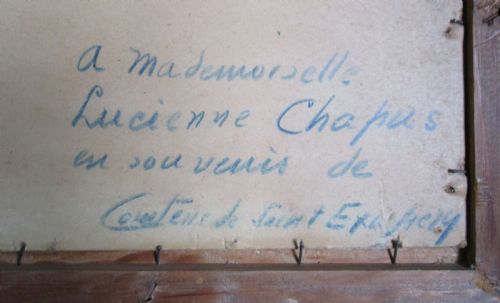 a Mademoiselle
Lucienne Chapus
en souvenir de
Comtesse de Saint Exupéry